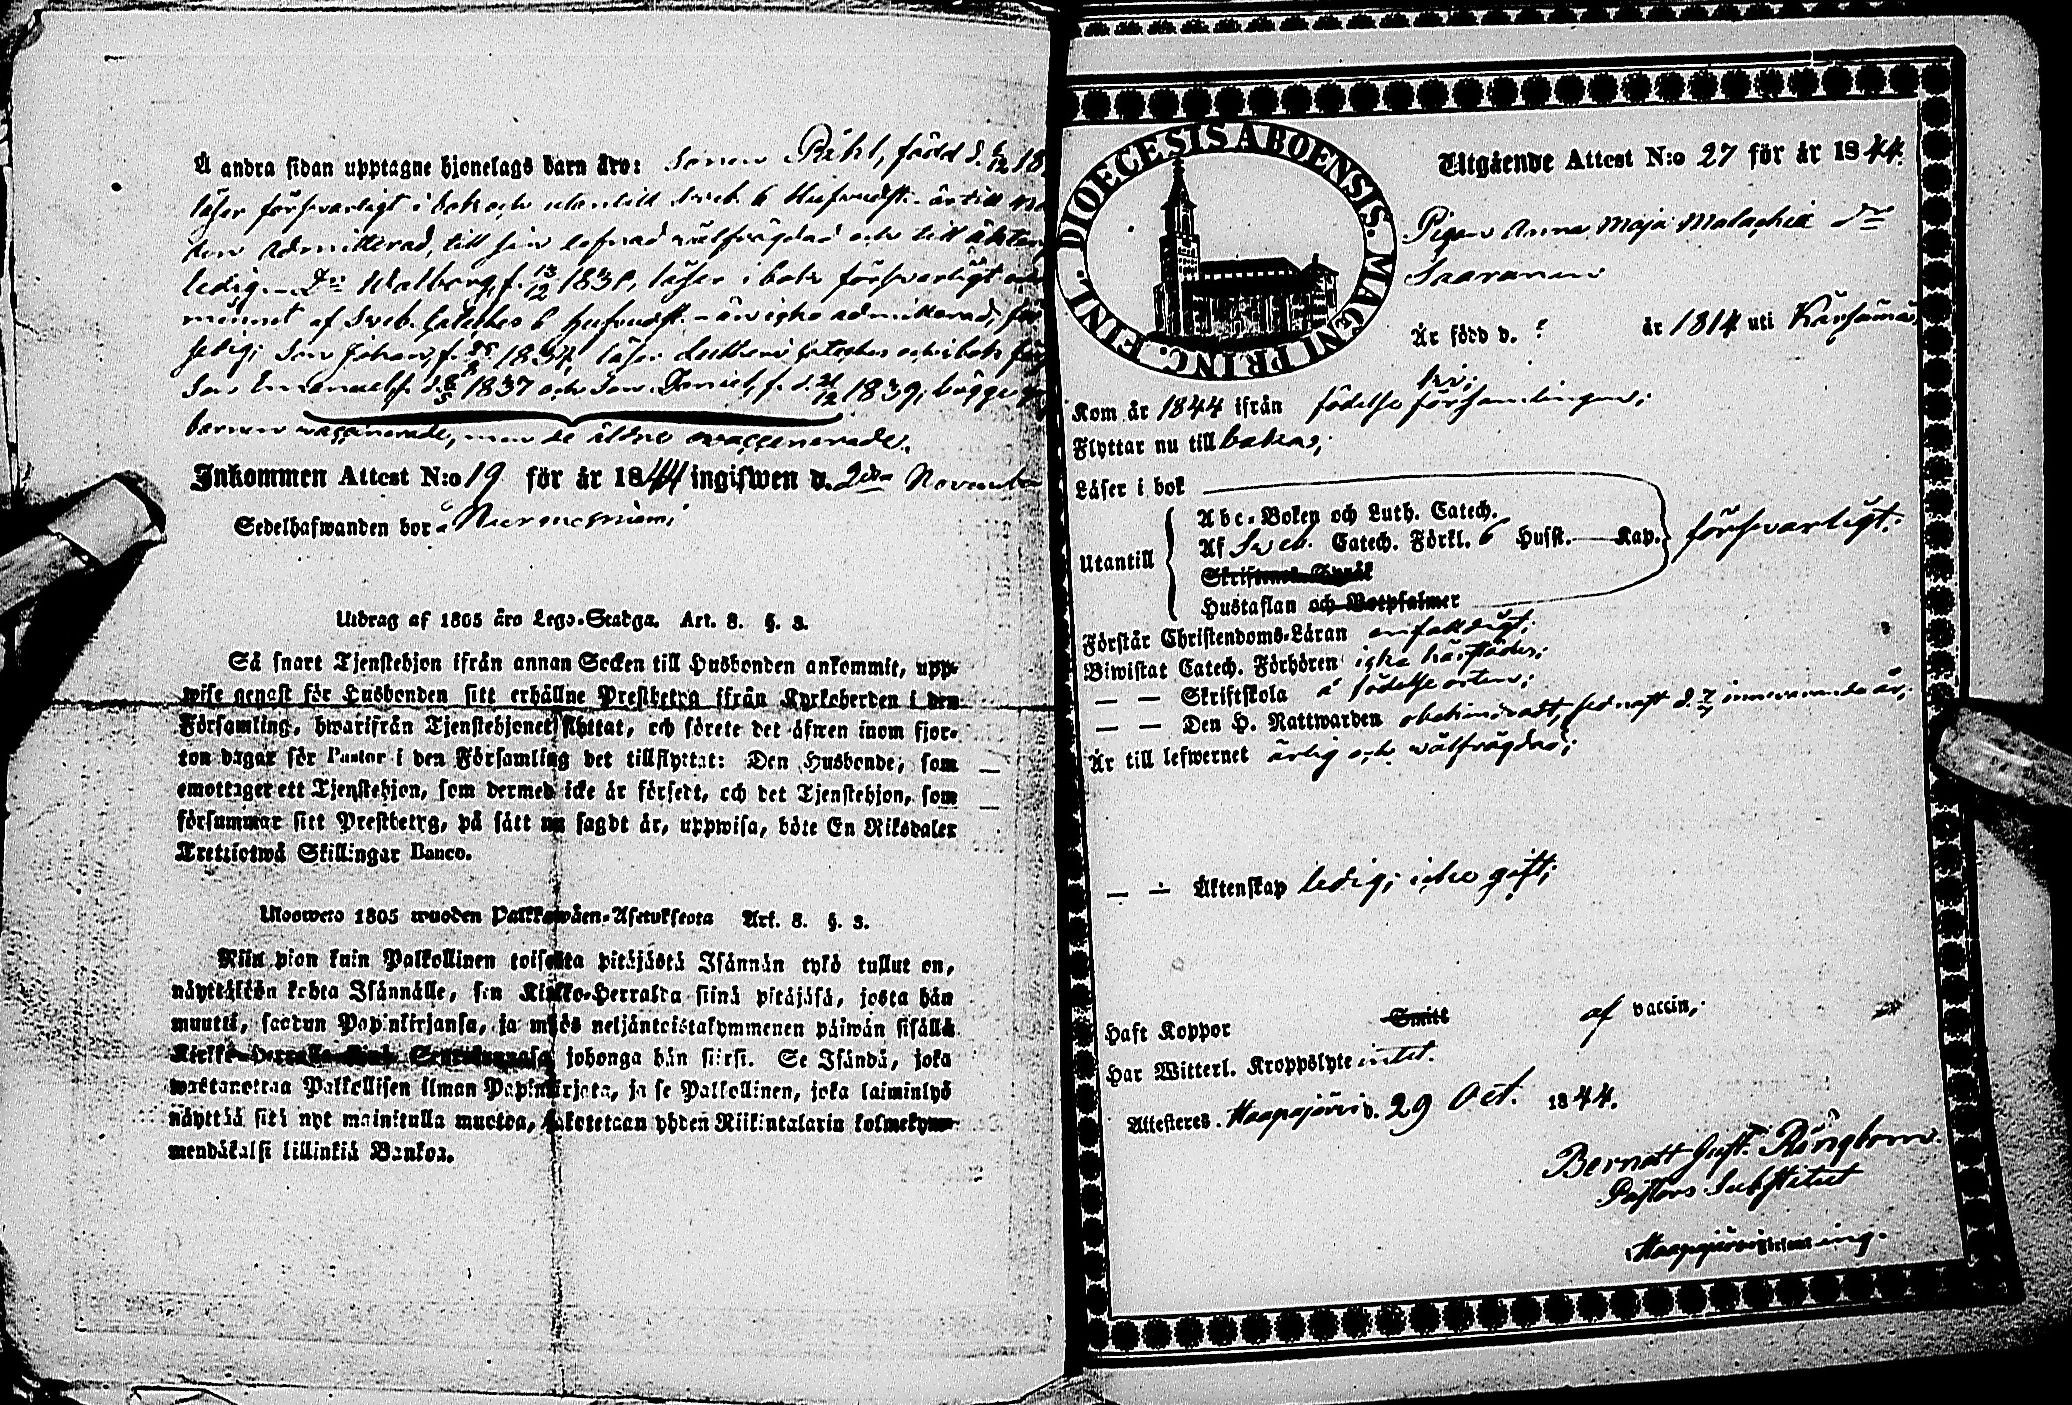 Å andra sidan upptagne hjonelags barn äro: Sonen Påhl, född d. 6/12 18
läser försvarligt i bok och utantill Sveb. 6 Hufvudst. är till
ten admitterad, till sin lefnad välfrägdad och till äkten
ledig. Dr Walborg, f. 13/12 1830, läser i bok försvarligt
minnet af Sveb. Cateches 6 Hufvudst. är icke admitterad,
ledig; Son Johan, f. 1834, läser Lutheri Cateches och i bok
Son Emanuel f. d. 1837 och Son Daniel, f. d. 21/12 1839; bägge
barnen vaccinerade, men de äldre ovaccinerade.
Inkommen Attest N:o 19 för år 1844 ingifwen d. 2dra November
Sedelhafwanden bor å Nurmesniemi
Utdrag af 1805 års Lego-Stadga. Art. 8. §. 3.
Så snart Tjenstehjon ifrån annan Socken till Husbonden ankommit, upp-
wise genast för Husbonden sitt erhållne Prestbetyg ifrån Kyrkoherden i den
Församling, hwarifrån Tjenstehjonet flyttat, och förete det äfwen inom fjor-
ton dagar för Pastor i den Församling det tillflyttat: Den Husbonde, som
emottager ett Tjenstehjon, som dermed icke är försedt, och det Tjenstehjon, som
försummar sitt Prestbetyg, på sätt nu sagdt är, uppwisa, böte En Riksdaler
Tretiotwå Skillingar Banco.
Ulosweto 1805 wuoden Palkkawäen-Asetuksesta Art. 8. §. 3.
Niin pian kuin Palkollinen toisesta pitäjästä Isännän tykö tullut on,
näyttäköön kohta Isännälle, sen Kirkko-Herralda siinä pitäjäsä, josta hän
muutti, saadun Papinkirjansa, ja myös neljäntoistakymmenen päiwän sisällä
Kirkko-Herralla siinä Seurakunnasa johonga hän siirsi. Se Isändä, joka
wastanottaa Palkollisen ilman Papinkirjata, ja se Palkollinen, joka laiminlyö
näyttää sitä nyt mainitulla muotoa, sakotetaan yhden Riikintalarin kolmekym-
mendäkaksi killinkiä Bankoa.
DIOECESIS ABOENSIS. MAGNI PRINC. FINL.
Utgående Attest N:o 27 för år 1844.
Pigan Anna Maja Malachia dr
Saaranen
Är född d. ? år 1814 uti Kärsämä,
Kom år 1844 ifrån födelse församlingen;
Flyttar nu till bakas;
Läser i bok
Utantill
Abc-Boken och Luth. Catech.
Af Sveb. Catech. Förkl. 6 Hufst. Kap. försvarligt.
Skriftenes Språk
Hustaflan och Botpsalmer
Förstår Christendoms-Läran enfaldigt;
Biwistat Catech. Förhören icke härstädes;
— — Skriftskola å födelse orten;
— — Den H. Nattwarden obehindradt, sednast d. 7/7 innevarande år;
Är till lefwernet ärlig och wälfrägdad;
— — Äktenskap ledig; icke gift;
Haft Koppor Smitt af vaccin;
Har Witterl. Kroppslyte intet.
Attesteres. Haapajärvi d. 29 Oct. 1844.
Bernatt Gust. Rångbom.
Pastors Substitut